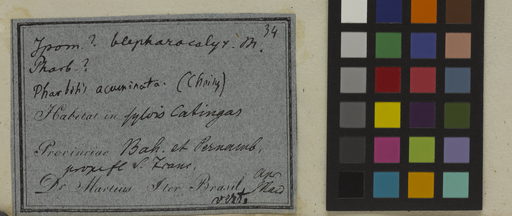 34
Ipom.? blepharocalyx. M.
Pharb.?
Pharbitis acuminata. (Choisy)
Habitat in sylvis Catingas
Provinciae Bah. et Pernamb.
prope fl. S. Franc.
Dr Martius Iter Brasil
verte